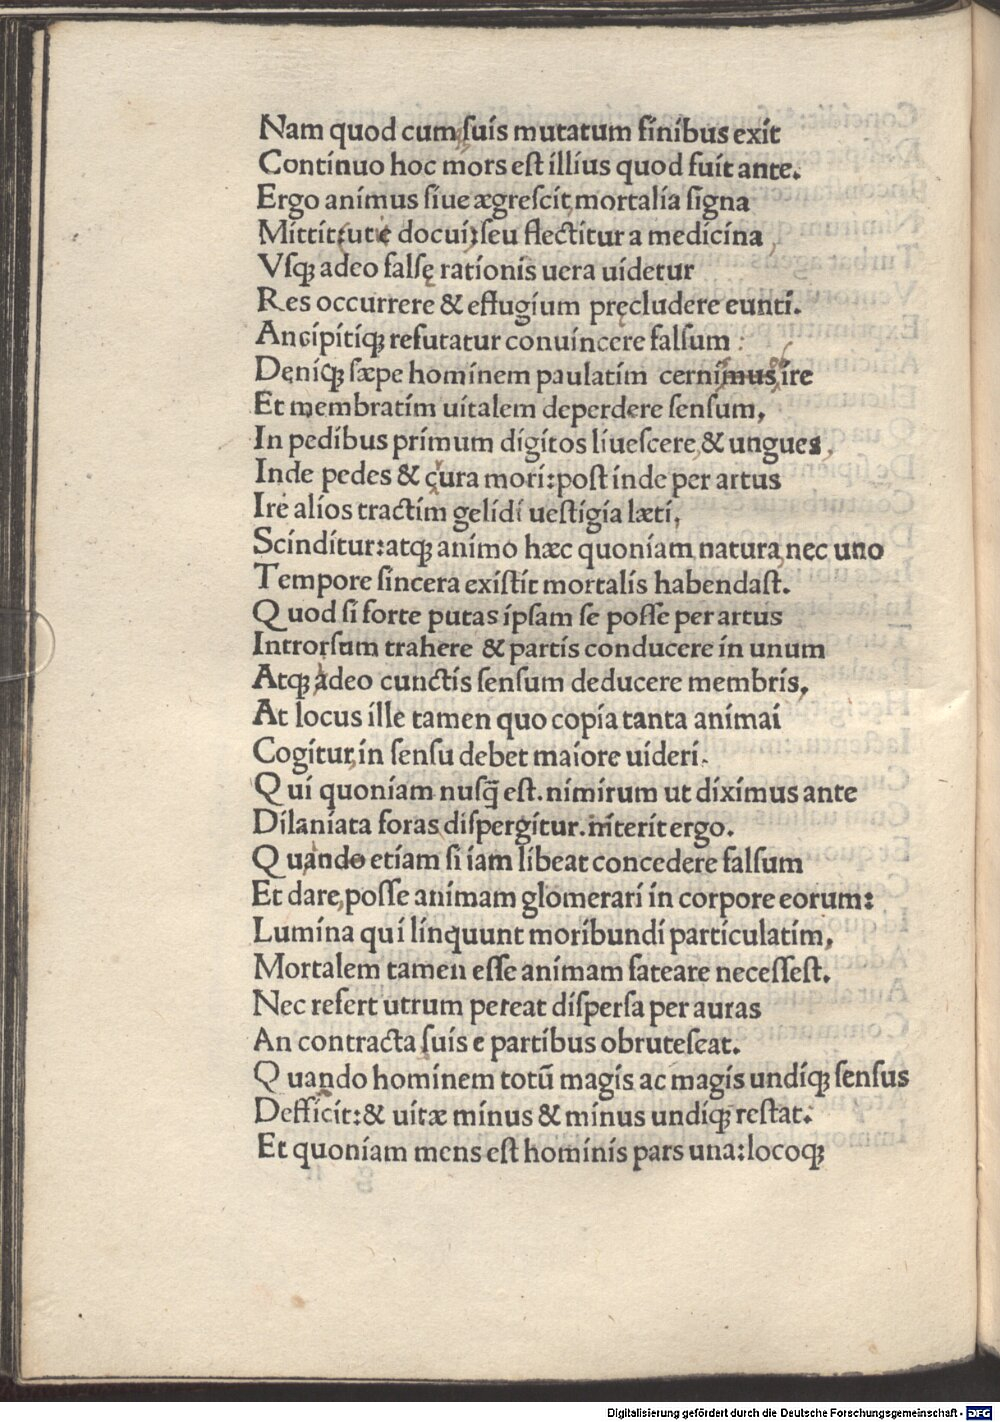 Nam quod cum ſuis mutatum finibus exit
Continuo hoc mors eſt illius quod fuit ante.
Ergo animus ſiue ægreſcit mortalia ſigna
Mittit:uti docui:ſeu flectitur a medicina
Vſqꝫ adeo falſę rationis uera uidetur
Res occurrere & effugium pręcludere eunti.
Ancipitiqꝫ refutatur conuincere falſum
Deniqꝫ ſæpe hominem paulatim cernimus ire
Et membratim uitalem deperdere ſenſum,
In pedibus primum digitos liueſcere & ungues,
Inde pedes & cura mori:poſt inde per artus
Ire alios tractim gelidi ueſtigia læti.
Scinditur:atqꝫ animo hæc quoniam natura nec uno
Tempore ſincera exiſtit mortalis habendaſt.
Quod ſi forte putas ipſam ſe poſſe per artus
Introrſum trahere & partis conducere in unum
Atqꝫ adeo cunctis ſenſum deducere membris.
At locus ille tamen quo copia tanta animai
Cogitur in ſenſu debet maiore uideri.
Qui quoniam nuſq̄ eſt.nimirum ut diximus ante
Dilaniata foras diſpergitur.interit ergo.
Quando etiam ſi iam libeat concedere falſum
Et dare poſſe animam glomerari in corpore eorum:
Lumina qui linquunt moribundi particulatim,
Mortalem tamen eſſe animam fateare neceſſeſt.
Nec refert utrum pereat diſperſa per auras
An contracta ſuis e partibus obruteſeat.
Quando hominem totū magis ac magis undiqꝫ ſenſus
Defficit:& uitæ minus & minus undiqꝫ reſtat.
Et quoniam mens eſt hominis pars una:locoqꝫ
Digitalisierung gefördert durch die Deutsche Forschungsgemeinschaft - DFG